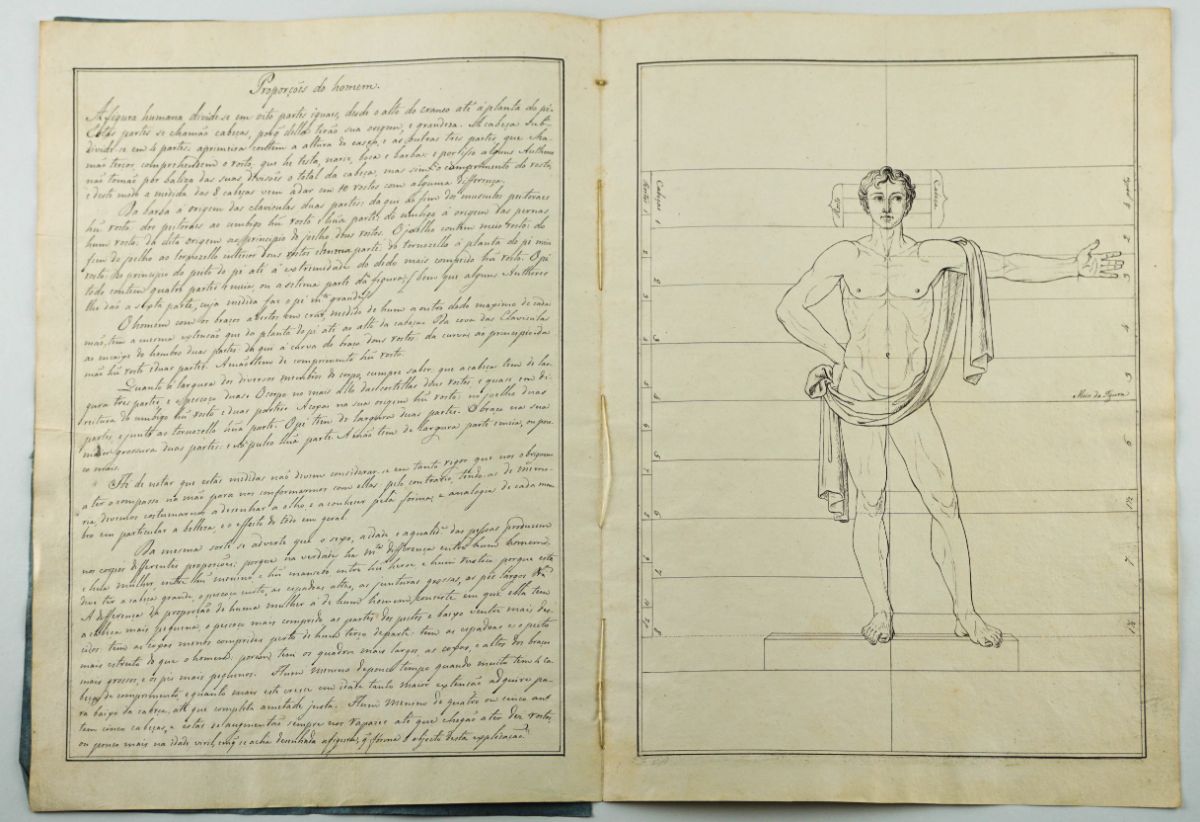 Proporções do homem.
A figura humana divide-se em oito partes iguaes, desde o alto do craneo até á planta do pé.
Estas partes se chamão cabeças, porq̃ della tirão sua origem, e grandeza. A cabeça sub-
divide-se em 4 partes: a primeira contém a altura do casco, e as outras tres partes, que cha-
mão terços, comprehendem o rosto, que he testa, nariz, boca e barba: e por isso alguns Authores
não tomão por baliza das suas divisões o total da cabeça, mas sim o comprimento do rosto,
e deste modo a medida das 8 cabeças vem a dar em 10 rostos com alguma differença.
Da barba á origem das claviculas duas partes: daqui ao fim dos musculos peitoraes
hũ rosto: dos peitoraes ao umbigo hũ rosto e hũa parte: do umbigo á origem das pernas
hum rosto: da dita origem ao principio do joelho dous rostos. O joelho contem meio rosto: do
fim do joelho ao tornozello exterior dous rostos e huma parte: do tornozello á planta do pé meio
rosto: do principio do peito do pé até á extremidade do dedo mais comprido hũ rosto. O pé
todo contem quatro partes e meia, ou a setima parte da figura; bem que alguns Authores
lhe dão a sexta parte, cuja medida faz o pé mto grande.
O homem com os braços abertos em cruz, medido de hum a outro dedo maximo de cada
mão, tem a mesma extensão que da planta do pé até ao alto da cabeça. Da cova das Claviculas
ao maior do hombro duas partes: daqui á curva do braço dous rostos: da curva ao principio da
mão hũ rosto e duas partes. A mão tem de comprimento hũ rosto.
Quanto á largura dos diversos membros do corpo, cumpre saber, que a cabeça tem de lar-
gura tres partes, e o pescoço duas: O corpo no mais alto das costellas dous rostos, e quasi em di-
reitura do umbigo hũ rosto e duas partes: A coxa na sua origem hũ rosto: no joelho duas
partes, e junto ao tornozello hũa parte. O pé tem de largura duas partes. O braço na sua
maior grossura duas partes: e no pulso hũa parte. A mão tem de largura parte e meia, ou pou-
co mais.
He de notar que estas medidas não devem considerar-se em tanto rigor que nos obriguem
a ter o compasso na mão para nos conformarmos com ellas: pelo contrario, tendo-as de memo-
ria, devemos costumarnos a desenhar a olho, e a conhecer pela forma, e analogia de cada mem-
bro em particular a belleza, e o effeito do todo em geral.
Da mesma sorte se adverte que o sexo, a idade, e a qualide das pessoas produzem
nos corpos differentes proporções; porque na verdade ha mta differença entre hum homem
e hũa mulher, entre hũ menino, e hũ mancebo entre hũ heroe e hum rustico porque este
deve ter a cabeça grande, o pescoço curto, as espadoas altas, as junturas grossas, os pés largos
A differença da proporção de huma mulher á de hum homem, consiste em que ella tem
a cabeça mais pequena, o pescoço mais comprido, as partes dos peitos e baixo ventre mais des-
cidos: tem as coxas menos compridas perto de hum terço de parte: tem as espadoas e o peito
mais estreito do que o homem: porem tem os quadris mais largos, as coxas, e altos dos braços
mais grossos, e os pés mais pequenos. Hum menino de pouco tempo quando muito tem 4 ca-
beças de comprimento, e quanto mais este cresce em idade tanto maior extensão adquire pa-
ra baixo da cabeça, até que completa a metade justa. Hum menino de quatro ou cinco annos
tem cinco cabeças, e estas se augmentão sempre nos rapazes até que chegão a ter dez rostos,
ou pouco mais na idade viril, em q̃ se acha desenhada a figura, q̃ fórma o objecto desta explicação.
Rostos 1
Cabeças 1
Rosto
Cabeça
Meio da figura